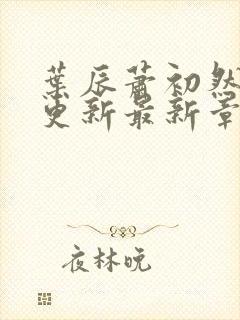 葉辰蕭初然
更新最新章
夜林晚